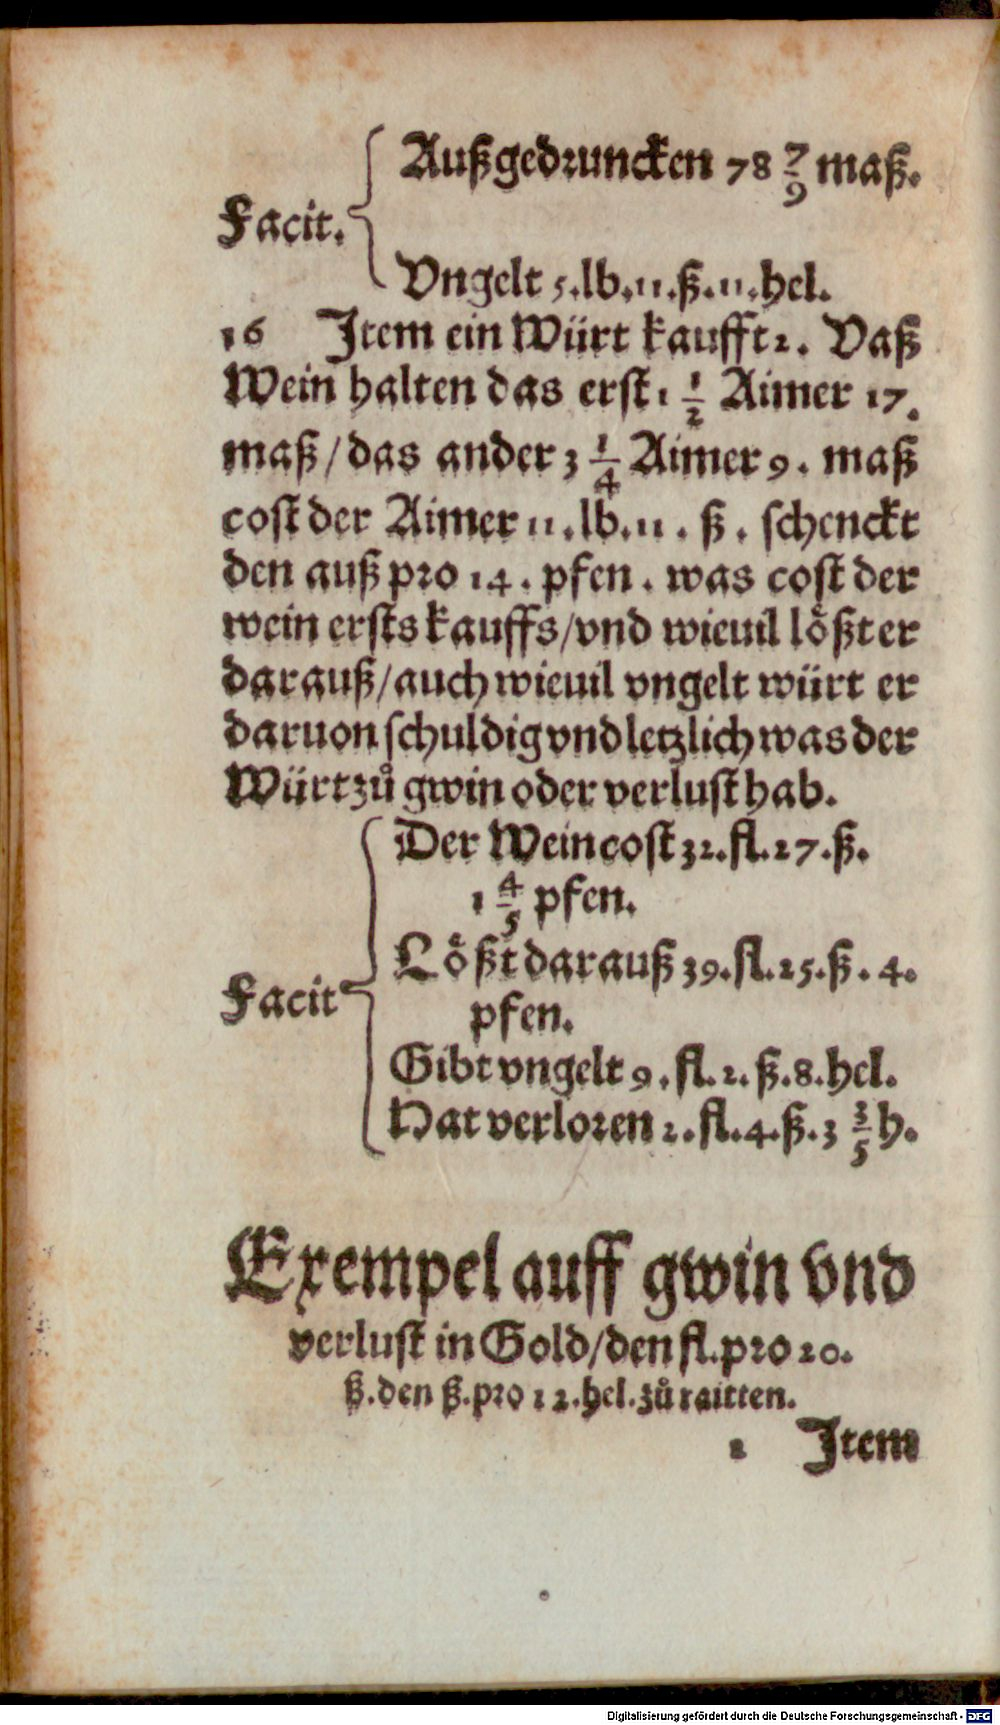 Außgedruncken 78 7/9 maß.
Facit.
Vngelt 5.lb.11.ß.11.hel.
16 Item ein Würt kaufft 2. Vaß
Wein halten das erst 1 1/2 Aimer 17.
maß/das ander 3 1/4 Aimer 9. maß
cost der Aimer 11.lb.11.ß. schenckt
den auß pro 14. pfen. was cost der
wein ersts kauffs/vnd wieuil lößt er
darauß/auch wieuil vngelt würt er
daruon schuldig vnd letzlich was der
Würt zů gwin oder verlust hab.
Der Wein cost 32.fl.27.ß.
1 4/5 pfen.
Lößt darauß 39.fl.25.ß.4.
Facit
pfen.
Gibt vngelt 9.fl.2.ß.8.hel.
Hat verloren 2.fl.4.ß.3 3/5 h.
Exempel auff gwin vnd
verlust in Gold/den fl.pro 20.
ß.den ß.pro 12.hel.zů raitten.
1 Item
Digitalisierung gefördert durch die Deutsche Forschungsgemeinschaft - DFG